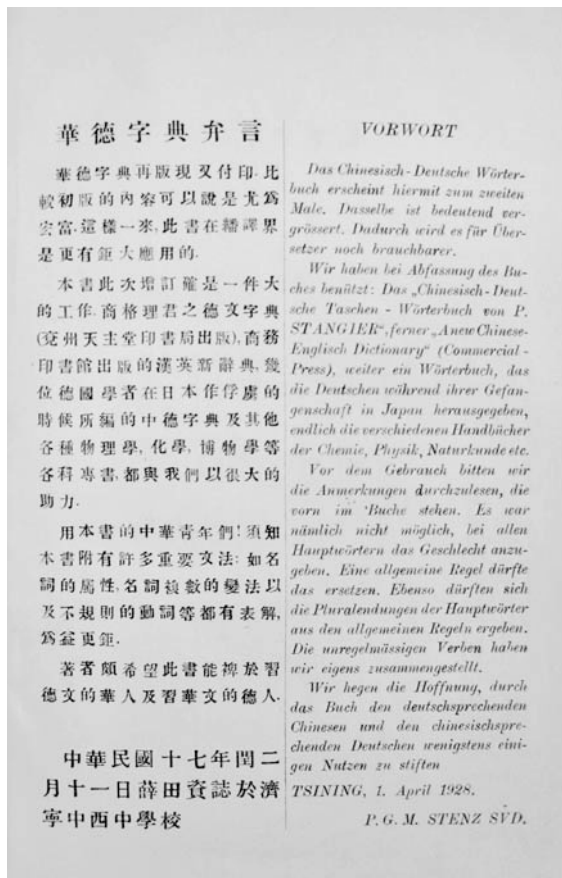 華德字典弁言
華德字典再版現又付印.比
較初版的內容可以說是尤爲
宏富.這樣一來,此書在繙譯界
是更有鉅大應用的.
本書此次增訂確是一件大
的工作.商格理君之德文字典
(兗州天主堂印書局出版),商務
印書館出版的漢英新辭典,幾
位德國學者在日本作俘虜的
時候所編的中德字典及其他
各種物理學,化學,博物學等
各科專書,都與我們以很大的
助力.
用本書的中華青年們!須知
本書附有許多重要文法:如名
詞的屬性,名詞複數的變法以
及不規則的動詞等都有表解,
爲益更鉅.
著者頗希望此書能裨於習
德文的華人及習華文的德人.
中華民國十七年閏二
月十一日薛田資誌於濟
寧中西中學校
VORWORT
Das Chinesisch-Deutsche Wörter-
buch erscheint hiermit zum zweiten
Male. Dasselbe ist bedeutend ver-
grössert. Dadurch wird es für Über-
setzer noch brauchbarer.
Wir haben bei Abfassung des Bu-
ches benützt: Das „Chinesisch-Deut-
sche Taschen-Wörterbuch von P.
STANGIER", ferner „A new Chinese-
Englisch Dictionary" (Commercial-
Press), weiter ein Wörterbuch, das
die Deutschen während ihrer Gefan-
genschaft in Japan herausgegeben,
endlich die verschiedenen Handbücher
der Chemie, Physik, Naturkunde etc.
Vor dem Gebrauch bitten wir
die Anmerkungen durchzulesen, die
vorn im Buche stehen. Es war
nämlich nicht möglich, bei allen
Hauptwörtern das Geschlecht anzu-
geben. Eine allgemeine Regel dürfte
das ersetzen. Ebenso dürften sich
die Pluralendungen der Hauptwörter
aus den allgemeinen Regeln ergeben.
Die unregelmässigen Verben haben
wir eigens zusammengestellt.
Wir hegen die Hoffnung, durch
das Buch den deutschsprechenden
Chinesen und den chinesischspre-
chenden Deutschen wenigstens eini-
gen Nutzen zu stiften
TSINING, 1. April 1928.
P. G. M. STENZ SVD.